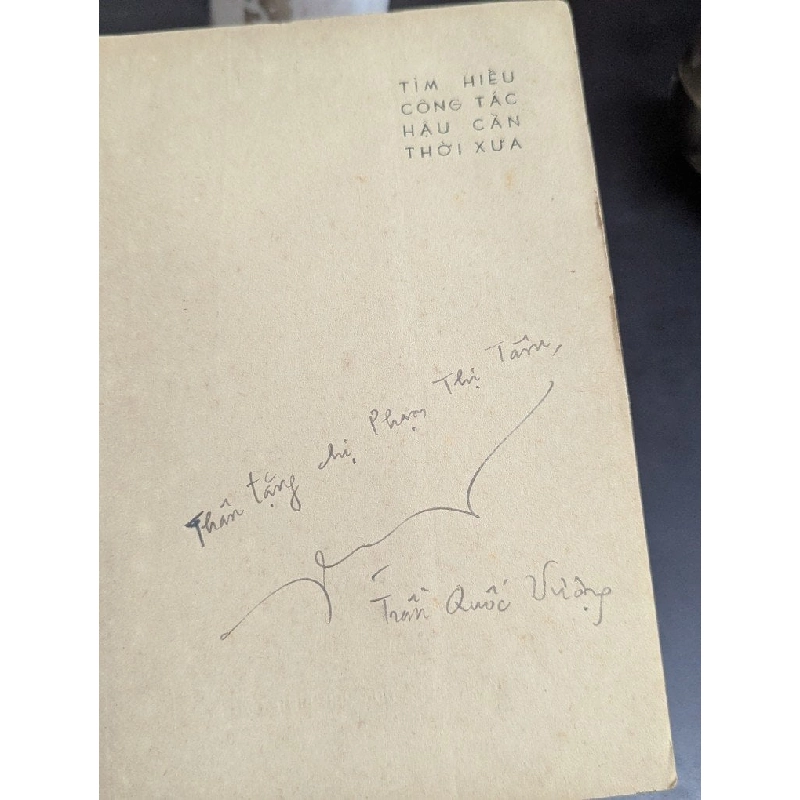 TÌM HIỂU
CÔNG TÁC
HẬU CẦN
THỜI XƯA
Thân tặng chị Phạm Thị Tâm,
Trần Quốc Vượng